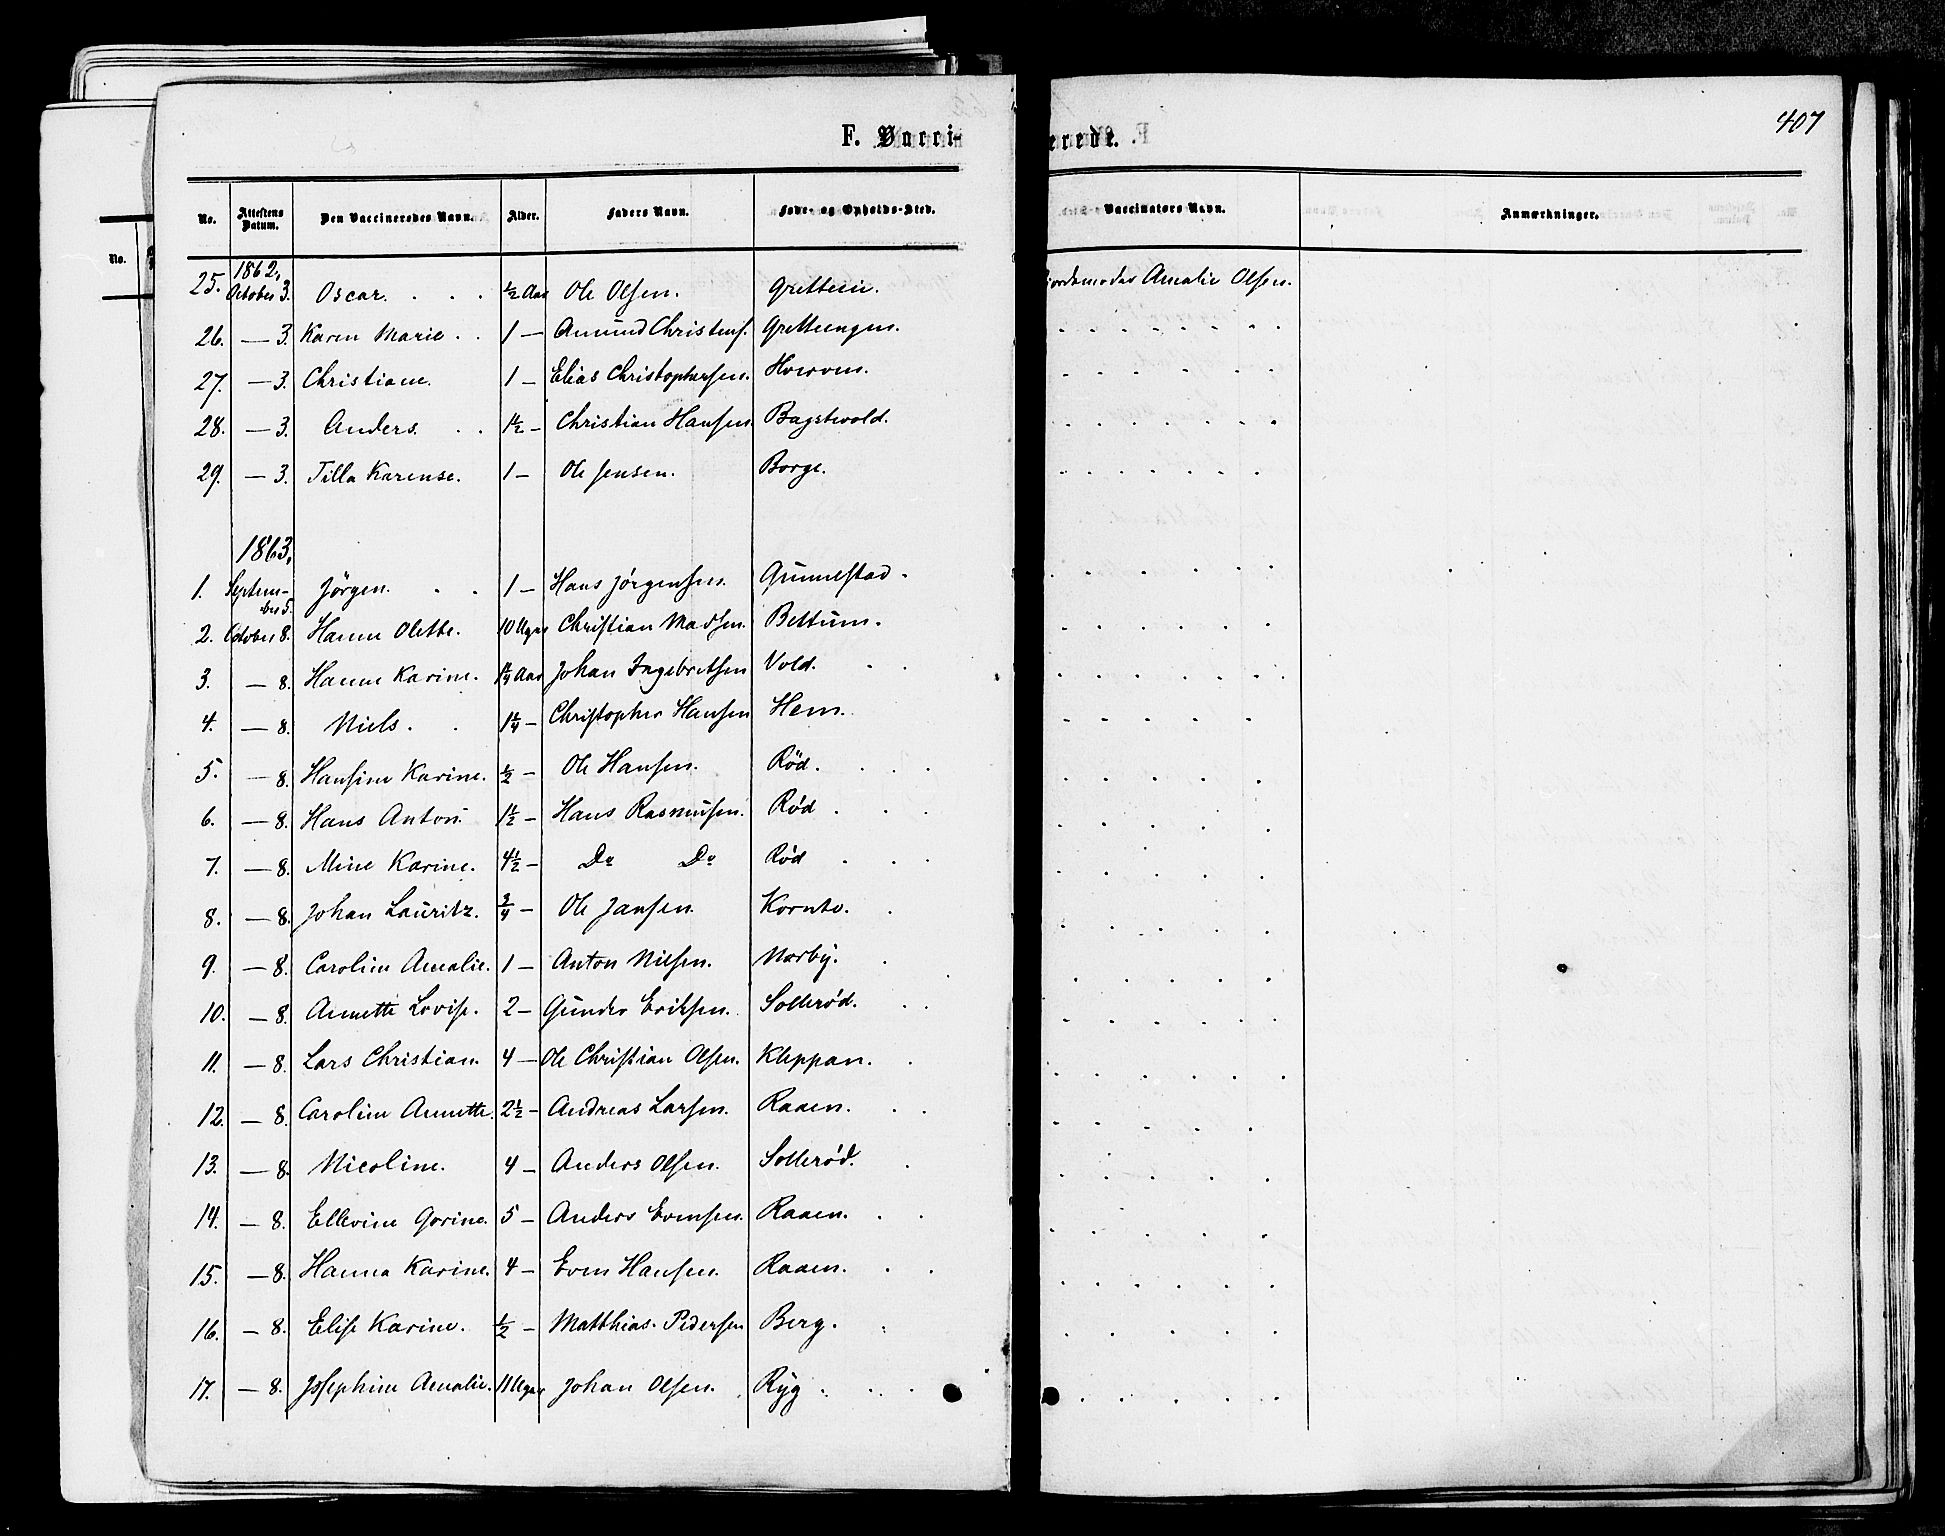 407
F. Vacci-
erede.
No. Attestens Datum. Den Vaccineredes Navn. Alder. Faders Navn. Føde- og Opholds-Sted. Vaccinators Navn. Anmærkninger.
No.
1862,
25. October 3. Oscar. ½ Aar Ole Olsen. Amalie Olsen.
26. — 3. Karen Marie. 1 — Amund Christens.
27. — 3. Christiane. 1 — Elias Christophersen.
28. — 3. Anders. 1½ — Christian Hansen Bogstvold.
29. — 3. Tilla Karense. 1 — Ole Jensen. Borge.
1863,
1. Septem-
ber 5. Jörgen. 1 — Hans Jørgensen. Gunnestad.
2. October 8. Hanne Olette. 10 Uger Christian Madsen. Bettum.
3. — 8. Hanne Karine. 1¼ Aar Johan Ingebretsen Vold.
4. — 8. Niels. 1¼ — Christopher Hansen Hem.
5. — 8. Hansine Karine. ½ — Ole Hansen. Röd.
6. — 8. Hans Anton. 1½ — Hans Rasmusen. Rød
7. — 8. Mine Karine. 4½ — Do Do Rød
8. — 8. Johan Lauritz. ¾ — Ole Jansen. Kornte.
9. — 8. Caroline Amalie. 1 — Anton Nilsen. Narby.
10. — 8. Annette Lovise. 2 — Gunder Eriksen. Sollerød.
11. — 8. Lars Christian. 4 — Ole Christian Olsen. Kleppan.
12. — 8. Caroline Annette. 2½ — Andreas Larsen. Raaen.
13. — 8. Nicoline. 4 — Anders Olsen. Sollerød.
14. — 8. Ellevine Gorine. 5 — Anders Evensen. Raaen.
15. — 8. Hanna Karine. 4 — Even Hansen. Raaen.
16. — 8. Elise Karine. ½ — Matthias Pedersen Berg.
17. — 8. Josephine Amalie. 11 Uger Johan Olsen. Ryg.